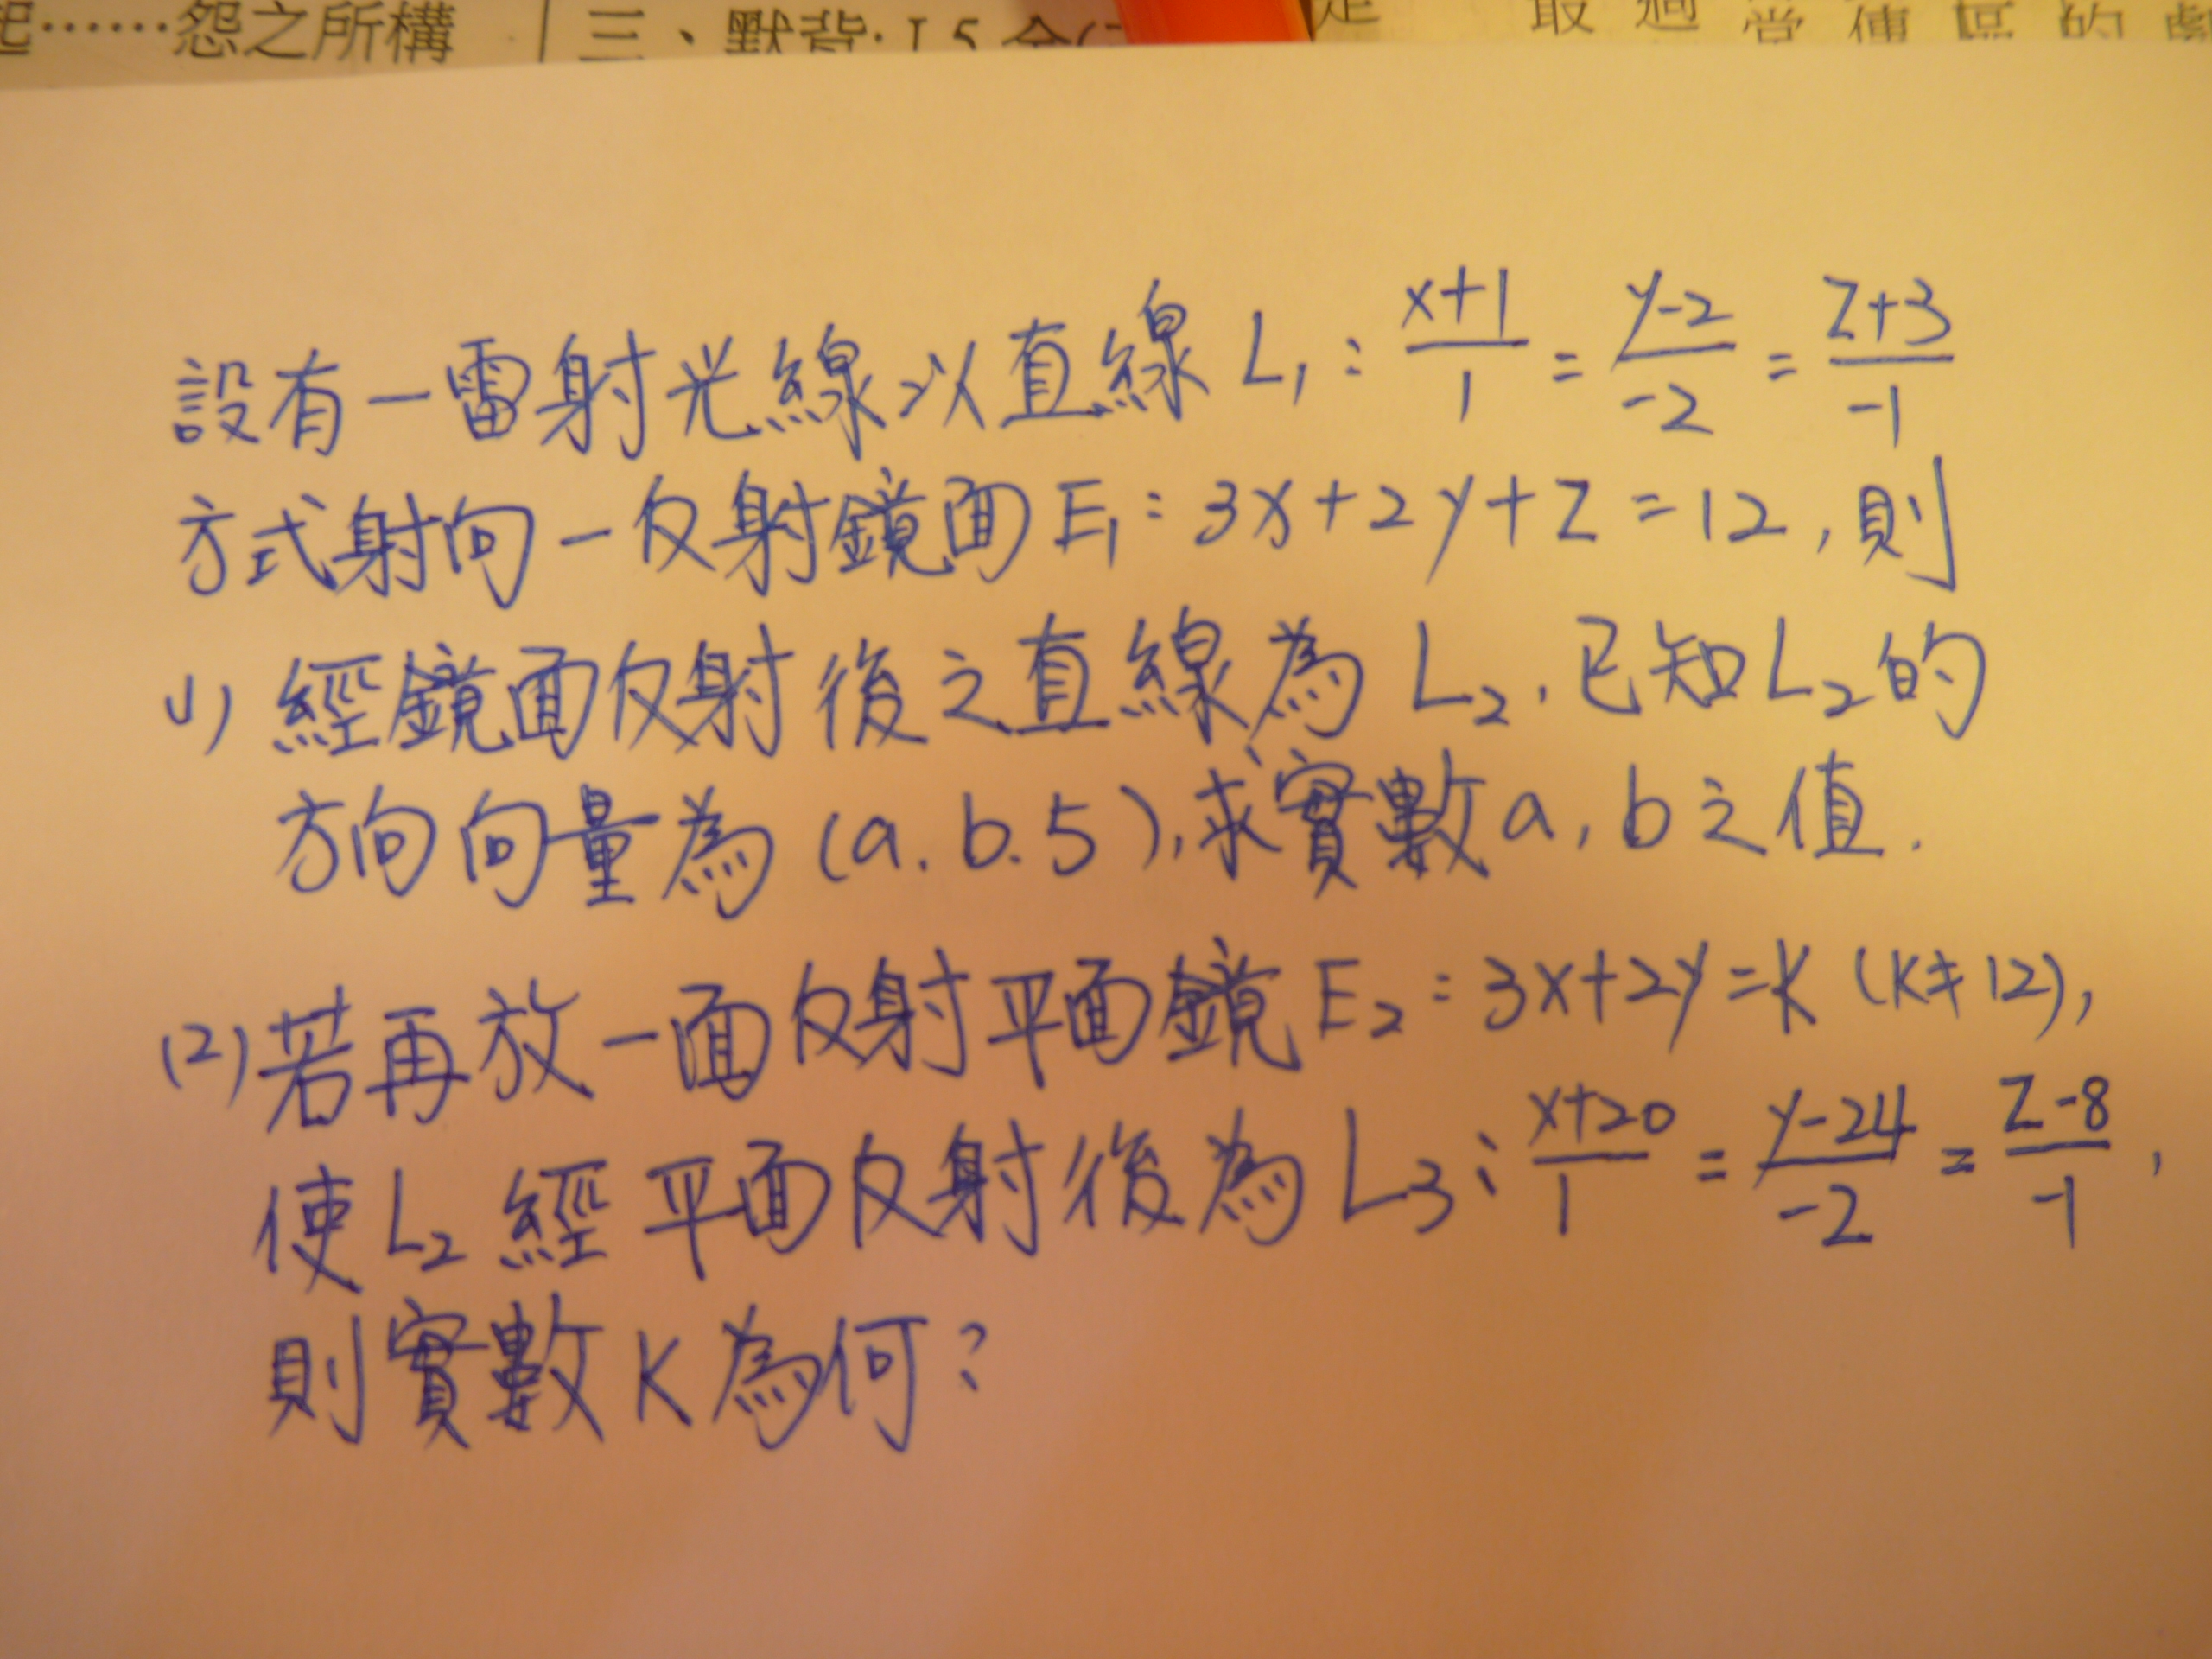 起……怨之所構
三、默背:L5
設有一雷射光線以直線 L₁ : (x+1)/1 = (y-2)/-2 = (z+3)/-1
方式射向一反射鏡面 E₁ : 3x+2y+z=12, 則
(1) 經鏡面反射後之直線為 L₂, 已知 L₂ 的
方向向量為 (a.b.5), 求實數 a, b 之值.
(2) 若再放一面反射平面鏡 E₂ : 3x+2y=k (k≠12),
使 L₂ 經平面反射後為 L₃ : (x+20)/1 = (y-24)/-2 = (z-8)/-1 ,
則實數 k 為何?